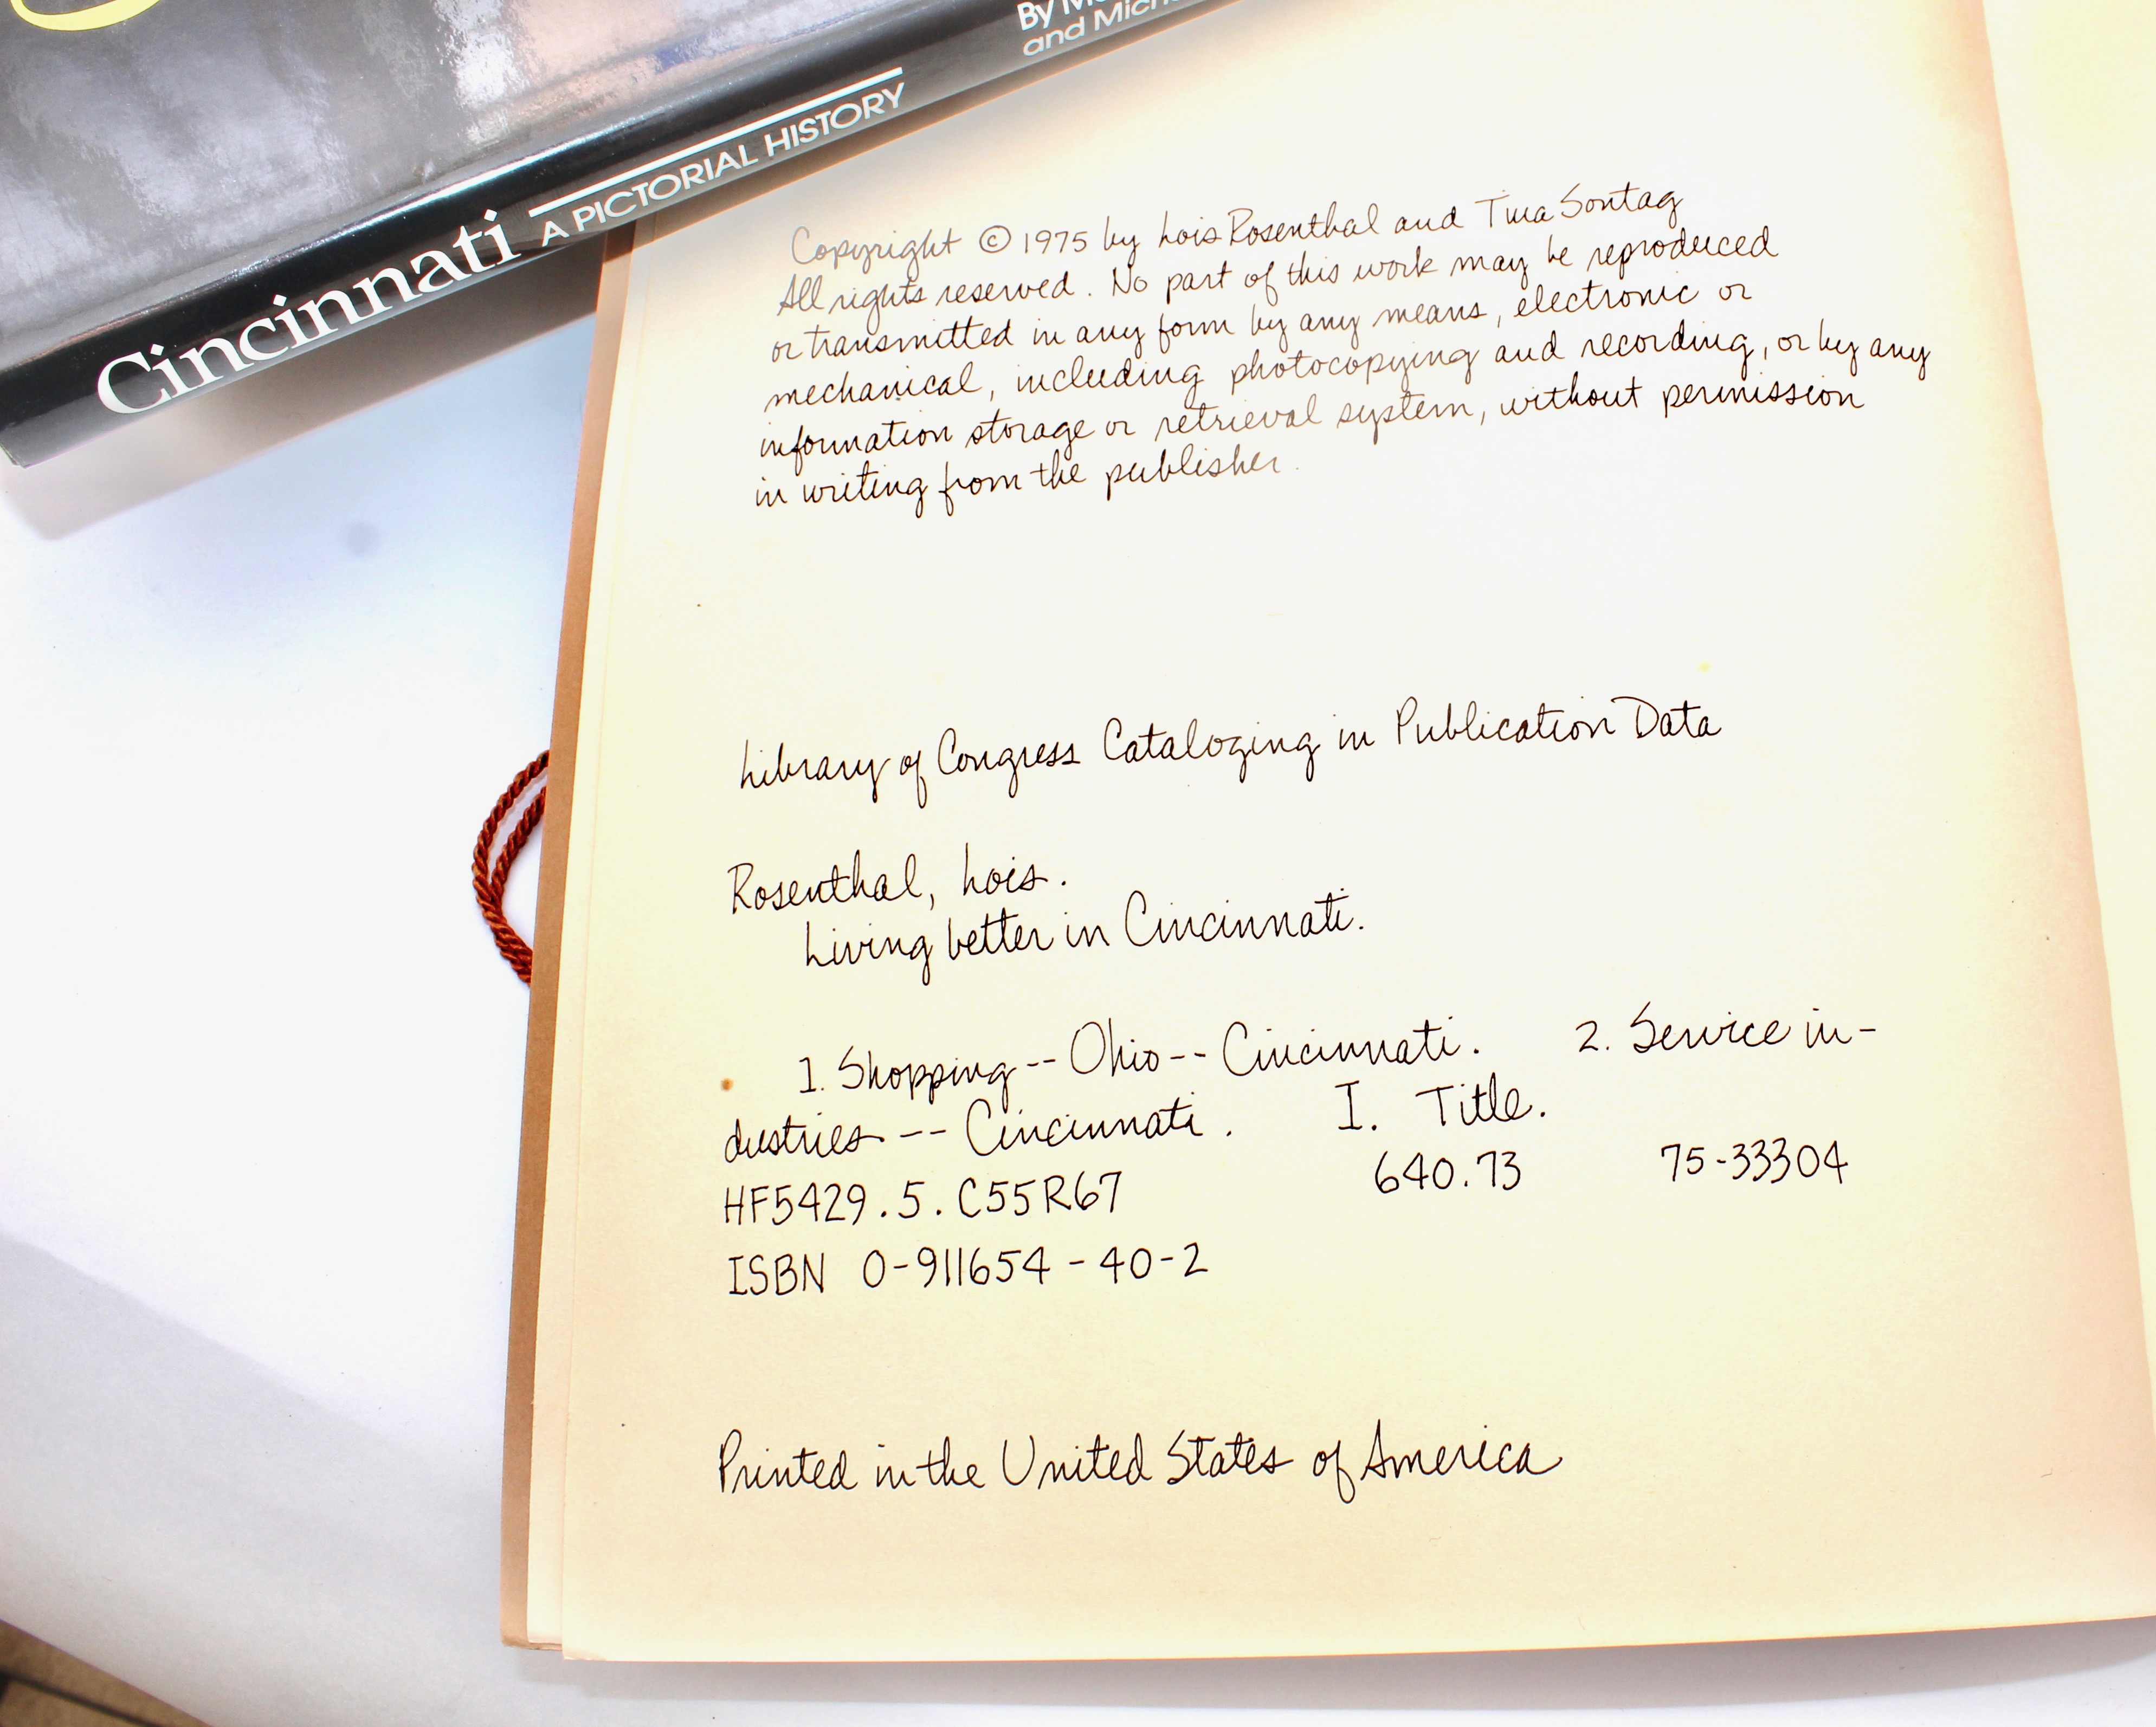 Cincinnati A PICTORIAL HISTORY
By
and
Copyright © 1975 by Lois Rosenthal and Tina Sontag
All rights reserved. No part of this work may be reproduced
or transmitted in any form by any means, electronic or
mechanical, including photocopying and recording, or by any
information storage or retrieval system, without permission
in writing from the publisher.
Library of Congress Cataloging in Publication Data
Rosenthal, Lois.
Living better in Cincinnati.
1. Shopping -- Ohio -- Cincinnati. 2. Service in-
dustries -- Cincinnati. I. Title.
HF5429.5.C55R67 640.73 75-33304
ISBN 0-911654-40-2
Printed in the United States of America